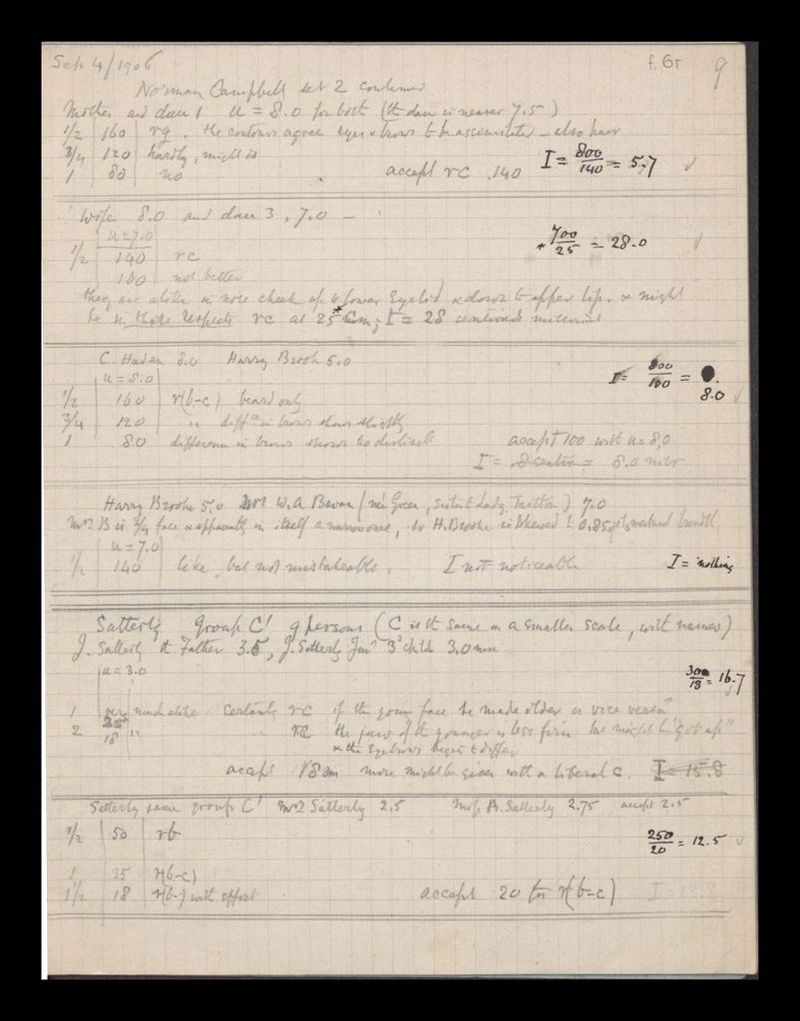 Sep 4/1906 f. 6r 9
Norman Campbell set 2 continued
Mother and dau 1 u = 8.0 for both (the dau is nearer 7.5)
1/2 160 rg. the contours agree eyes & brows to be assimilated – also hair
3/4 120 hardly, might do I = 800/140 = 5.7 ✓
1 80 no accept rc 140
Wife 8.0 and dau 3, 7.0 –
u = 7.0
1/2 140 rc * 700/25 = 28.0 ✓
160 not better
they are alike in nose cheek up to lower eyelid & down to upper lip. & might
be in these respects rc at 25 * ; I = 28
C. Haden 8.0 Harry Brooke 5.0
u = 8.0 I = 800/100 = 8.0 ✓
1/2 160 r(b-c) beard only
3/4 120 " diffce in brows shows slightly
1 80 difference in brows shows too distinctly accept 100 with u = 8.0
I = 8.0
Harry Brooke 5.0 Mrs W.A Bevan (née Green, ) 7.0
Mrs B is 3/4 face & apparently in itself a narrow one, so H. Brooke is skewed to 0.85 of its natural breadth
u = 7.0
1/2 140 like, but not mistakeable. I not noticeable I = nothing
Satterly Group C' 9 persons (C is the same on a smaller scale, with names)
J. Satterly the Father 3.5, J. Satterly Junr 3d child 3.0
u = 3.0 300/18 = 16.7
1 25 very much alike Certainly rc if the young face be made older or vice versa
2 18 " rc the jaw of the younger is less firm but might be "got up"
& the eyebrows begin to differ
accept 18 more might be given with a liberal c. I = 15.8
Satterly same group C' Mrs Satterly 2.5 Miss A. Satterly 2.75 accept 2.5
1/2 50 rb 250/20 = 12.5 ✓
1 35 r(b-c)
1 1/2 18 r(b-) with effort accept 20 for r(b-c)